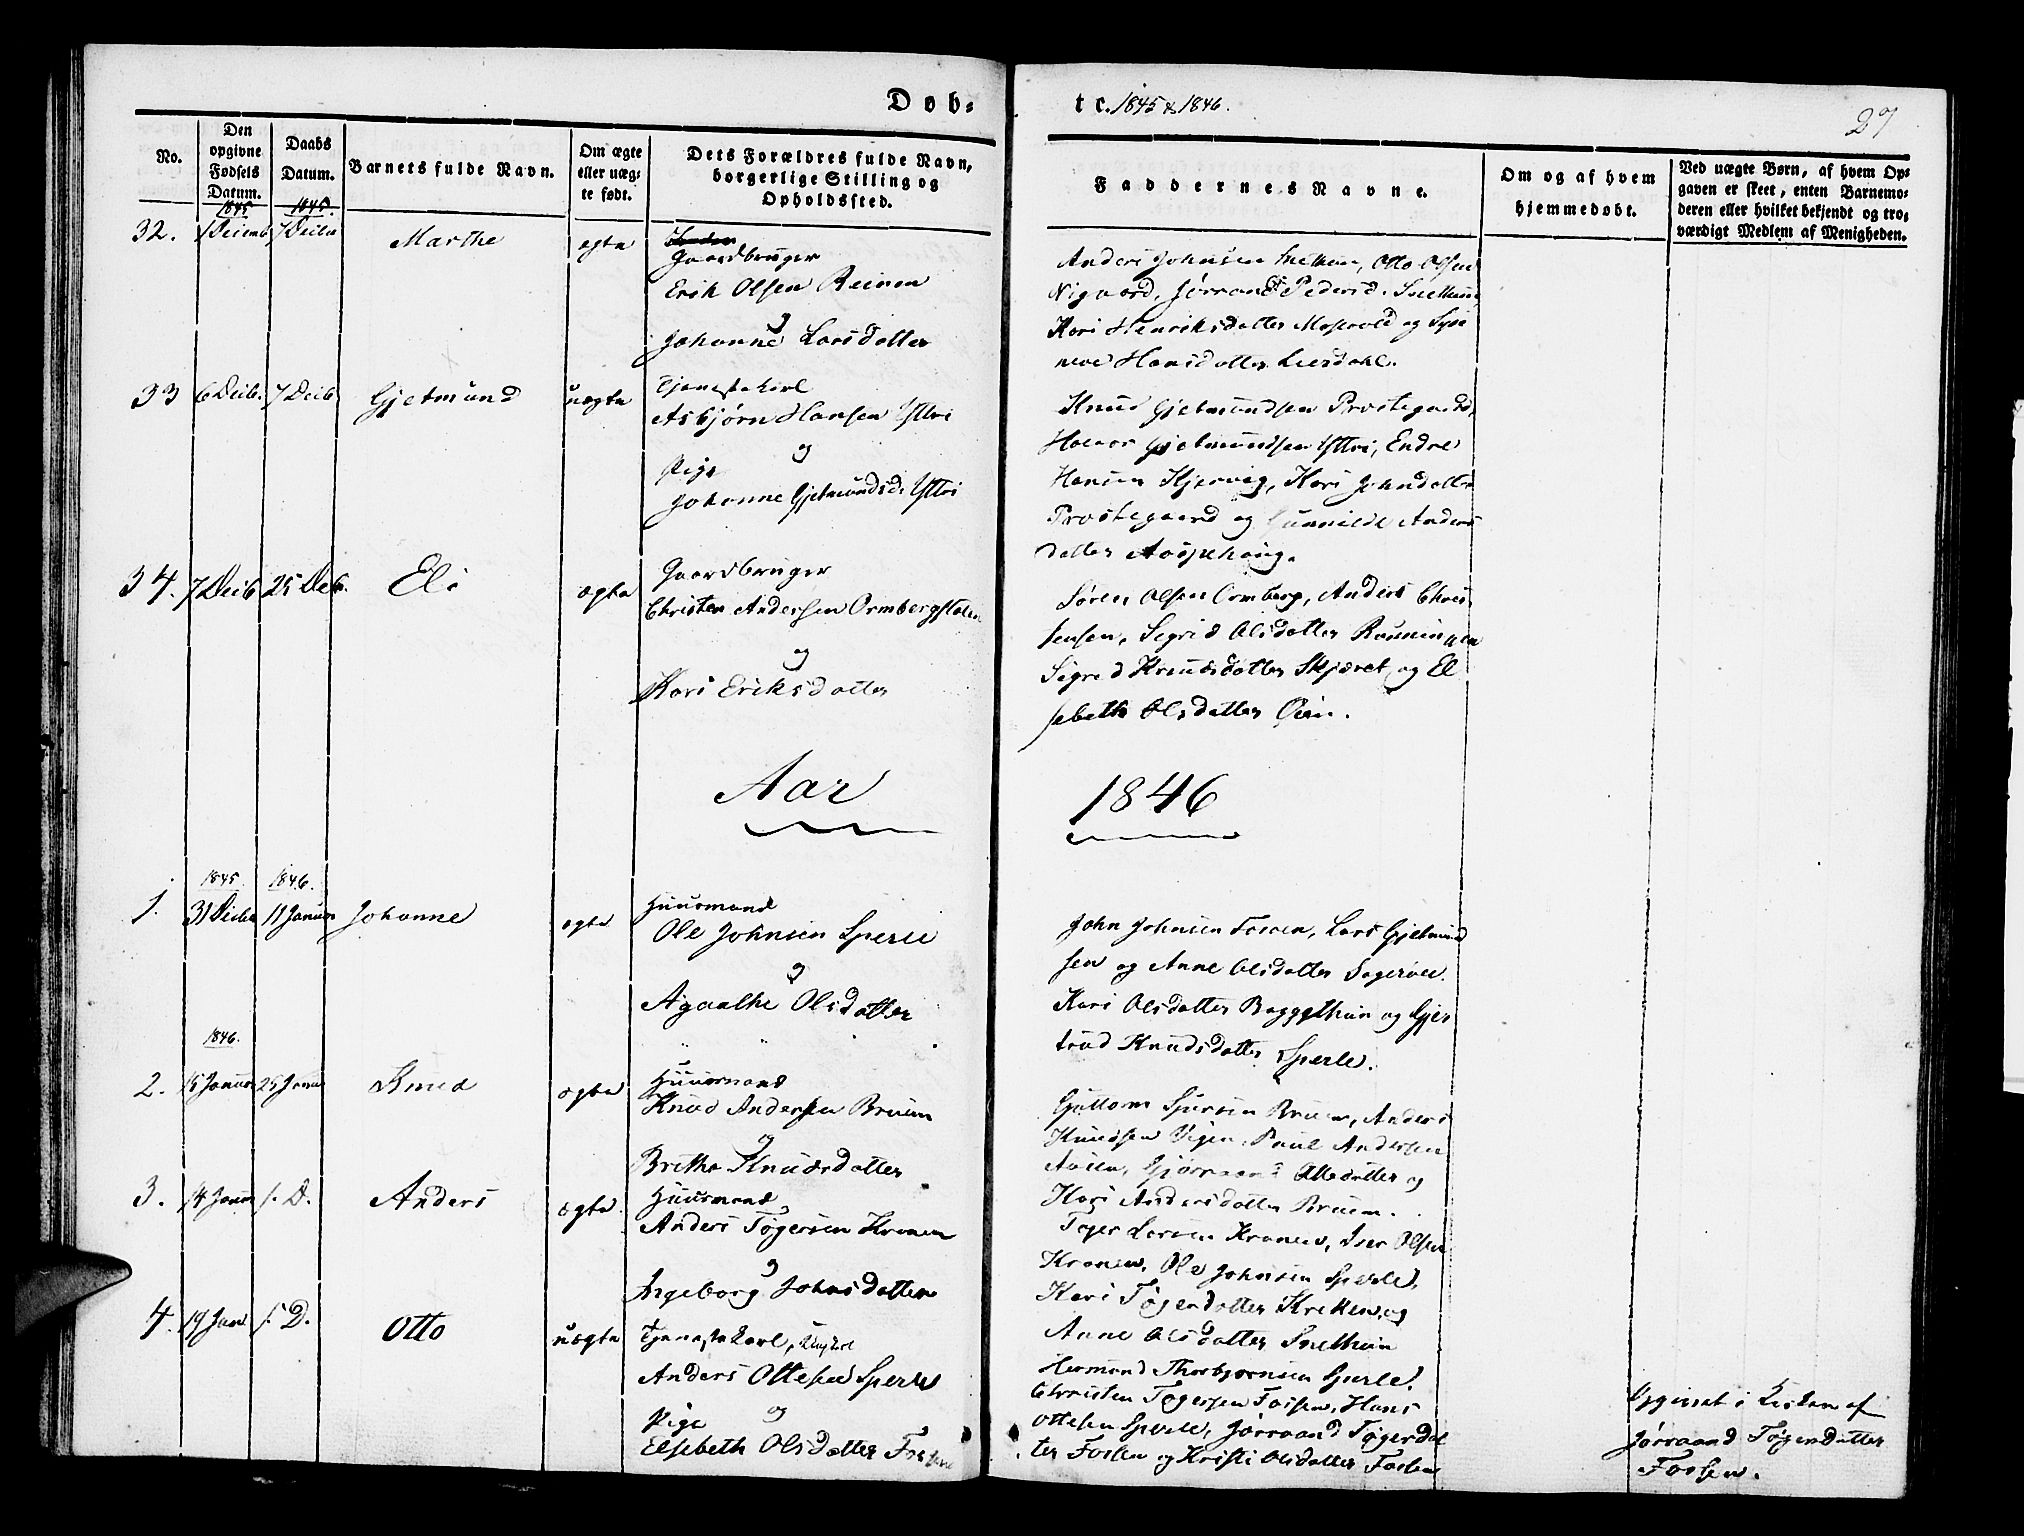 Døb-
te. 1845 & 1846.
27
No.
Den opgivne Fødsels Datum.
Daabs Datum.
Barnets fulde Navn.
Om ægte eller uæg- te født.
Dets Forældres fulde Navn, borgerlige Stilling og Opholdssted.
Faddernes Navne.
Om og af hvem hjemmedøbt.
Ved uægte Børn, af hvem Op- gaven er skeet, enten Barnemo- deren eller hvilket bekjendt og tro- værdigt Medlem af Menigheden.
1845 1845
32. 1 Decemb 7 Decbr Marthe ægte
Gaardbruger
Erik Olsen Reinen
og
Johanne Larsdatter
Anders Johnsen Snelhuun, Otto Olsen
Nigaard, Jørrand Pedersd. Snelhuun,
Kari Henriksdatter Mosevold og Syn
neve Hansdatter Liesdahl.
33 6 Decb. 7 Decb Gjetmund uægte
Tjenestekarl
Asbjørn Hansen Yttri
og
Pige
Johanne Gjetmundsd. Yttri
Knud Gjetmundsen Prostegaard,
Halvor Gjetmundsen Yttri, Endre
Hansen Kjervig, Kari Johnsdatter
Prostegaard og Gunnilde Anders
datter Aasjehaug.
34. 7 Decb 25 Decb. Eli ægte
Gaardbruger
Christen Andersen Ormbergstølen
og
Kari Eriksdatter
Søren Olsen Ormberg, Anders Chris
tensen, Sigrid Olsdatter Rønningen
Sigrid Knudsdatter Skjæret og El
sebeth Olsdatter Øien.
Aar 1846
1845. 1846.
1. 31 Decbr 11 Januar Johanne ægte
Huusmand
Ole Johnsen Sperle
og
Agaathe Olsdatter
John Johnsen Fossen, Lars Gjetmund
sen og Anne Olsdatter Sogerøe.
Kari Olsdatter Baggethun og Gjer
trud Knudsdatter Sperle.
1846.
2. 15 Januar 25 Janu Knud ægte
Huusmand
Knud Andersen Bruun
og
Britha Knudsdatter
Guttorm Sjursen Bruun, Anders
Knudsen Vigen, Paul Andersen
Aasen, Gjørrand Ottedatter og
Kari Andersdatter Bruun.
3. 14 Janu s. D. Anders ægte
Huusmand
Anders Tøgersen Kronen
og
Ingeborg Johnsdatter
Tøger Larsen Kronen, Iver Olsen
Kronen, Ole Johnsen Sperle,
Kari Tøgersdatter Krekken og
Anne Olsdatter Snelhuun
4. 19 Jan s. D. Otto uægte
Tjenestekarl, Ungkarl
Anders Ottesen Sperle
og
Pige
Elsebeth Olsdatter Fossen
Hermund Thorbjørnsen Sperle,
Christen Tøgersen Fossen, Hans
Ottesen Sperle, Jørrand Tøgersdat
ter Fossen og Kristi Olsdatter Fossen
Opgivet i Kirken af
Jørrand Tøgersdatter
Fossen.